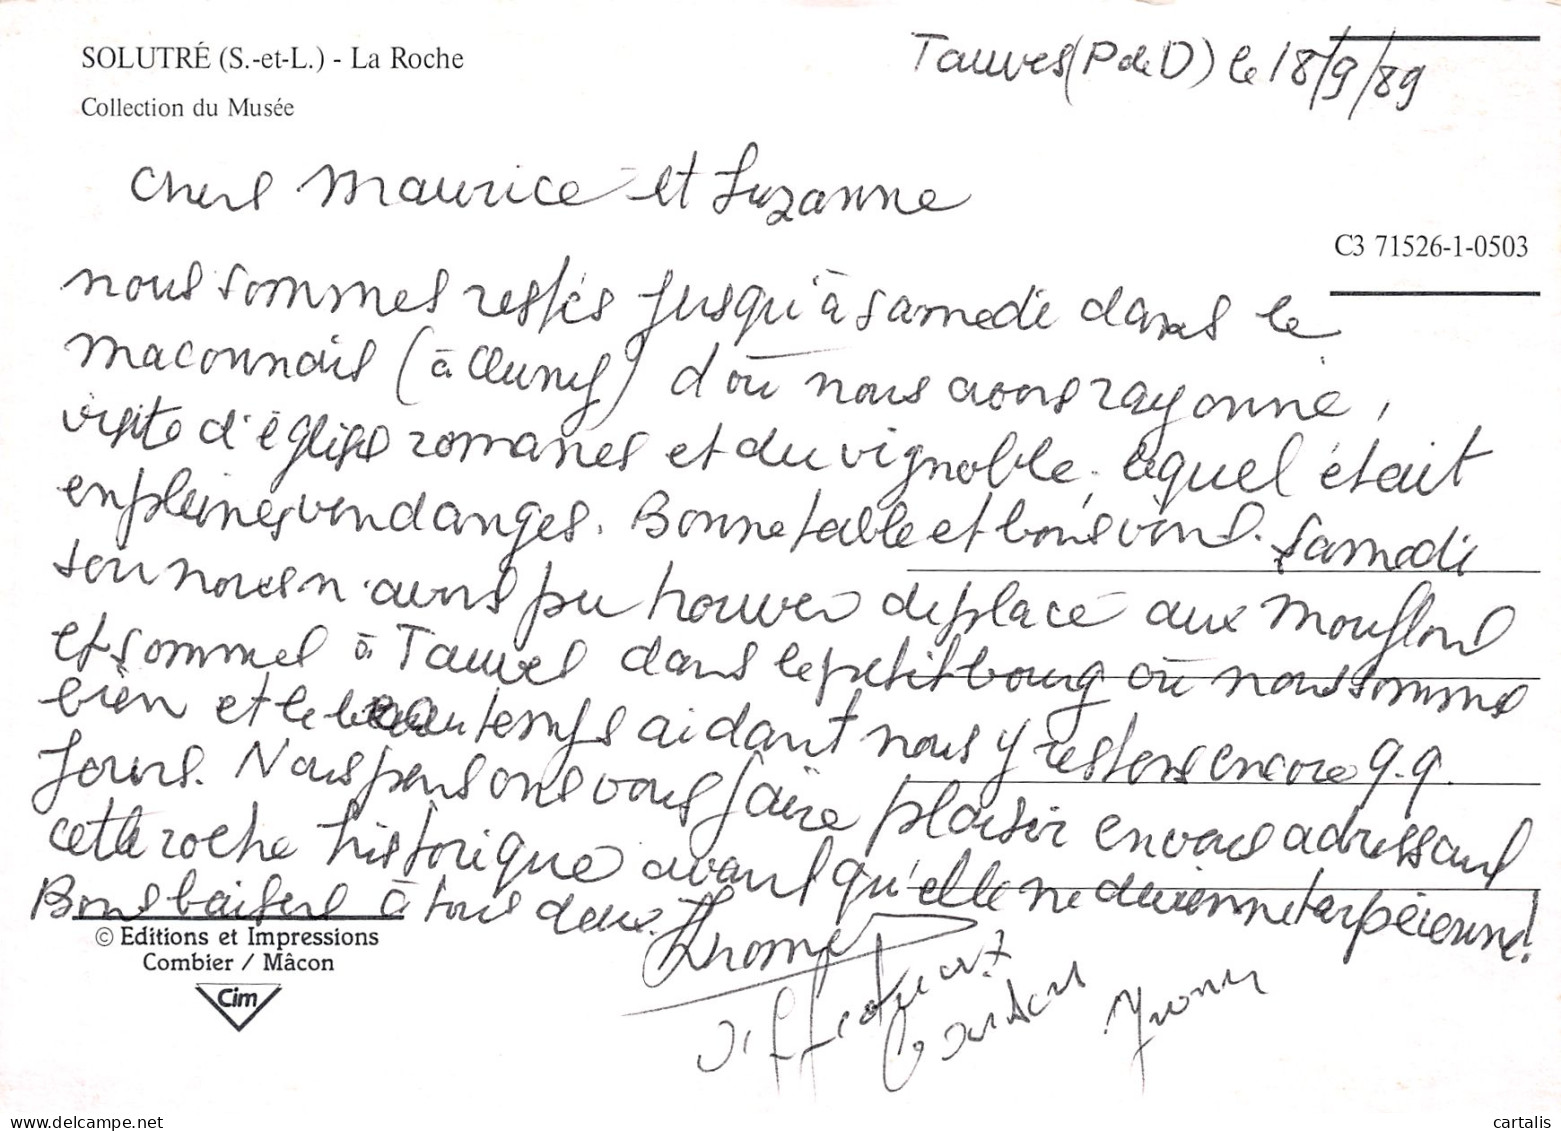 SOLUTRÉ (S.-et-L.) - La Roche
Collection du Musée
Tauves (P de D) le 18/9/89
Chers Maurice et Suzanne
C3 71526-1-0503
nous sommes restés jusqu'à samedi dans le
maconnais (à Cluny) d'où nous avons rayonné,
visite d'églises romanes et du vignoble, lequel était
en pleines vendanges. Bonne table et bons vins. Samedi
soir nous n'avons pu trouver de place aux Mouflons
et sommes à Tauves dans le petit bourg où nous sommes
bien et le beau temps aidant nous y restons encore q.q.
jours. Nous pensons vous faire plaisir en vous adressant
cette roche historique avant qu'elle ne devienne tarpéienne!
Bons baisers à tous deux.
© Editions et Impressions
Combier / Mâcon
Cim
Yvonne
www.delcampe.net
cartalis